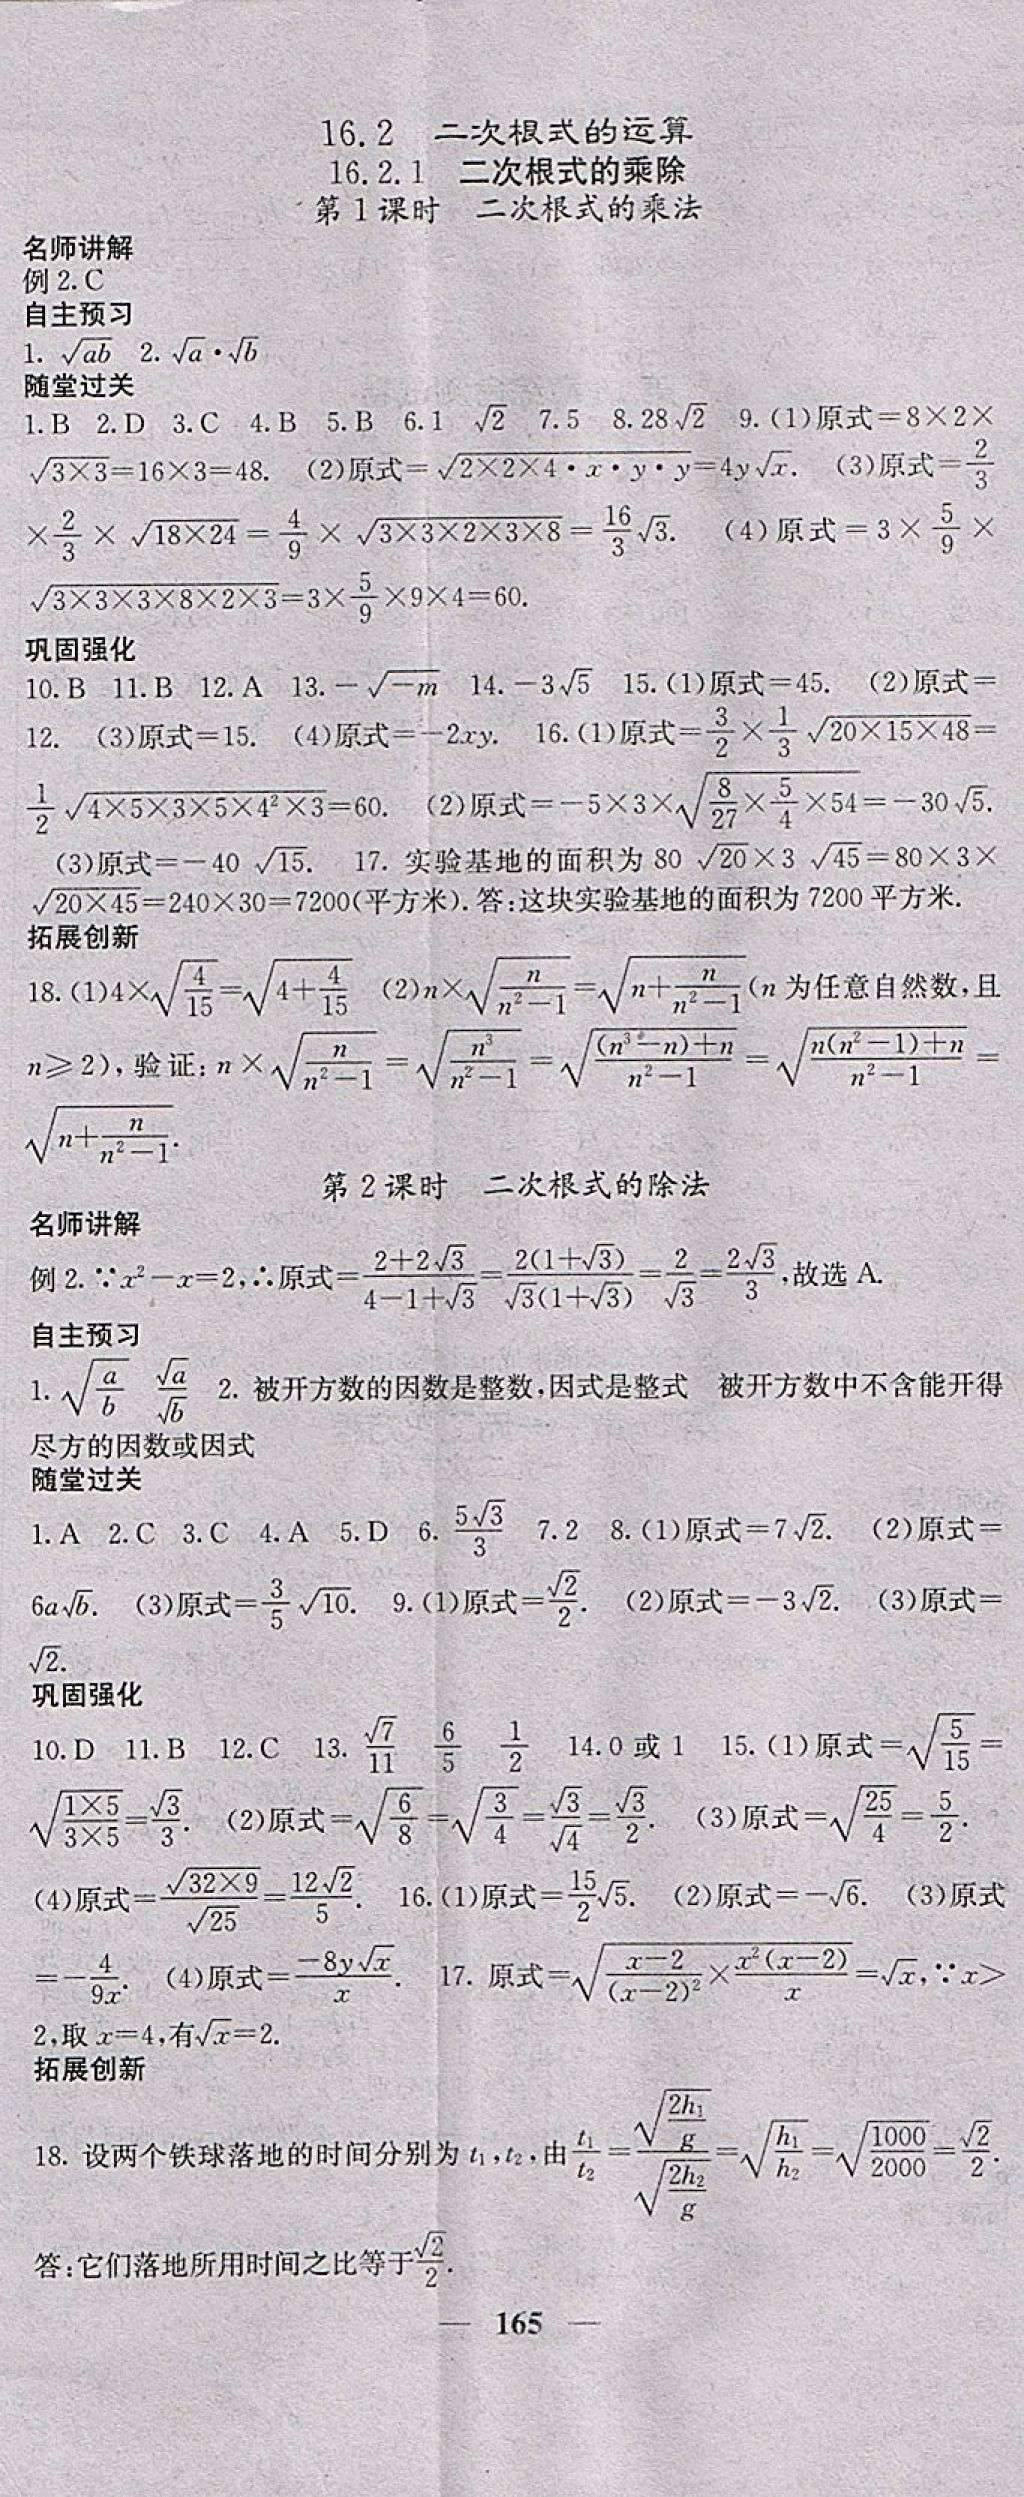 16.2 二次根式的运算
16.2.1 二次根式的乘除
第1课时 二次根式的乘法
名师讲解
例2.C
自主预习
1. √(ab) 2. √a·√b
随堂过关
1.B 2.D 3.C 4.B 5.B 6.1 √2 7.5 8.28√2 9.(1)原式=8×2×
√(3×3)=16×3=48. (2)原式=√(2×2×4·x·y·y)=4y√x. (3)原式=2/3
×2/3×√(18×24)=4/9×√(3×3×2×3×8)=16/3√3. (4)原式=3×5/9×
√(3×3×3×8×2×3)=3×5/9×9×4=60.
巩固强化
10.B 11.B 12.A 13.-√(-m) 14.-3√5 15.(1)原式=45. (2)原式=
12. (3)原式=15. (4)原式=-2xy. 16.(1)原式=3/2×1/3√(20×15×48)=
1/2√(4×5×3×5×4²×3)=60. (2)原式=-5×3×√(8/27×5/4×54)=-30√5.
(3)原式=-40√15. 17. 实验基地的面积为80√20×3√45=80×3×
√(20×45)=240×30=7200(平方米).答:这块实验基地的面积为7200平方米.
拓展创新
18.(1)4×√(4/15)=√(4+4/15) (2)n×√(n/(n²-1))=√(n+n/(n²-1))(n为任意自然数,且
n≥2),验证:n×√(n/(n²-1))=√(n³/(n²-1))=√(((n³-n)+n)/(n²-1))=√((n(n²-1)+n)/(n²-1))=
√(n+n/(n²-1)).
第2课时 二次根式的除法
名师讲解
例2.∵x²-x=2,∴原式=(2+2√3)/(4-1+√3)=2(1+√3)/(√3(1+√3))=2/√3=2√3/3,故选A.
自主预习
1. √(a/b) √a/√b 2. 被开方数的因数是整数,因式是整式 被开方数中不含能开得
尽方的因数或因式
随堂过关
1.A 2.C 3.C 4.A 5.D 6. 5√3/3 7.2 8.(1)原式=7√2. (2)原式=
6a√b. (3)原式=3/5√10. 9.(1)原式=√2/2. (2)原式=-3√2. (3)原式=
√2.
巩固强化
10.D 11.B 12.C 13. √7/11 6/5 1/2 14.0或1 15.(1)原式=√(5/15)=
√((1×5)/(3×5))=√3/3. (2)原式=√(6/8)=√(3/4)=√3/√4=√3/2. (3)原式=√(25/4)=5/2.
(4)原式=√(32×9)/√25=12√2/5. 16.(1)原式=15/2√5. (2)原式=-√6. (3)原式
=-4/9x. (4)原式=-8y√x/x. 17. 原式=√((x-2)/(x-2)²×x²(x-2)/x)=√x,∵x>
2,取x=4,有√x=2.
拓展创新
18. 设两个铁球落地的时间分别为t₁,t₂,由t₁/t₂=√(2h₁/g)/√(2h₂/g)=√(h₁/h₂)=√(1000/2000)=√2/2.
答:它们落地所用时间之比等于√2/2.
— 165 —